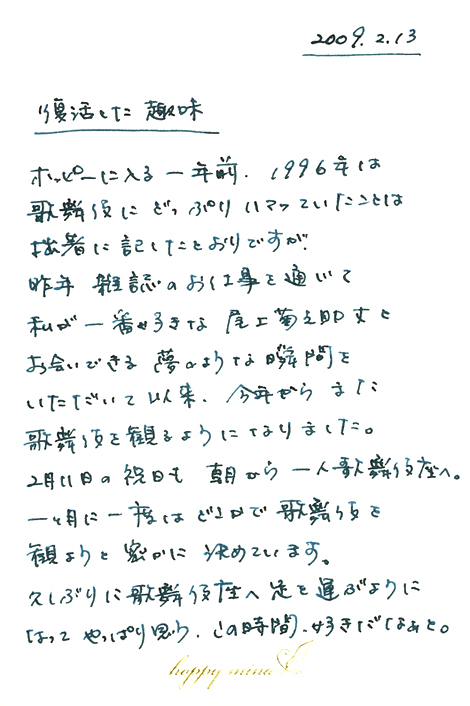 2009.2.13
復活した趣味
ホッピーに入る一年前、1996年は
歌舞伎にどっぷりハマっていたことは
拙著に記したとおりですが
昨年 雑誌のお仕事を通じて
私が一番好きな尾上菊之助丈と
お会いできる夢のような瞬間を
いただいて以来、今年からまた
歌舞伎を観るようになりました。
2月11日の祝日も朝から一人歌舞伎座へ。
一ヶ月に一度はどこかで歌舞伎を
観ようと密かに決めています。
久しぶりに歌舞伎座へ足を運ぶように
なって やっぱり思う、この時間、好きだなぁと。
happy mina